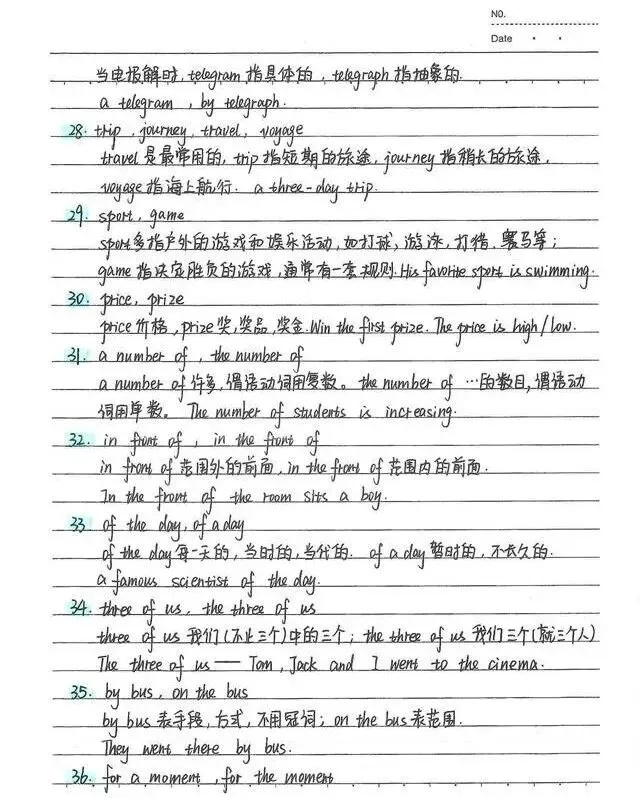 NO.
Date
当电报解时, telegram 指具体的, telegraph 指抽象的.
a telegram , by telegraph.
28. trip, journey, travel, voyage
travel 是最常用的, trip 指短期的旅途, journey 指稍长的旅途,
voyage 指海上航行. a three-day trip.
29. sport, game
sport 多指户外的游戏和娱乐活动, 如打球, 游泳, 打猎, 赛马等;
game 指决定胜负的游戏, 通常有一套规则. His favorite sport is swimming.
30. price, prize
price 价格, prize 奖, 奖品, 奖金. Win the first prize. The price is high/low.
31. a number of , the number of
a number of 许多, 谓语动词用复数。 the number of …的数目, 谓语动
词用单数。 The number of students is increasing.
32. in front of , in the front of
in front of 范围外的前面, in the front of 范围内的前面.
In the front of the room sits a boy.
33. of the day, of a day
of the day 每一天的, 当时的, 当代的. of a day 暂时的, 不长久的.
a famous scientist of the day.
34. three of us, the three of us
three of us 我们(不止三个)中的三个; the three of us 我们三个(就三个人)
The three of us — Tom, Jack and I went to the cinema.
35. by bus, on the bus
by bus 表手段, 方式, 不用冠词; on the bus 表范围.
They went there by bus.
36. for a moment, for the moment